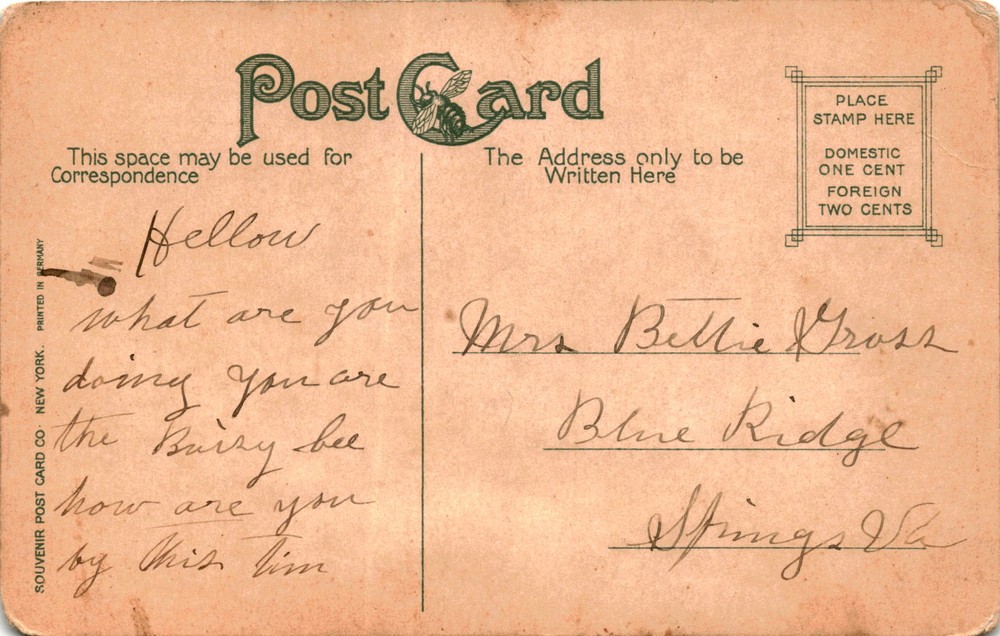 Post Card
This space may be used for
Correspondence
The Address only to be
Written Here
PLACE
STAMP HERE
DOMESTIC
ONE CENT
FOREIGN
TWO CENTS
SOUVENIR POST CARD CO. NEW YORK. PRINTED IN GERMANY
Hellow
what are you
doing you are
the Buizy bee
how are you
by this tim
Mrs Bettie Gross
Blue Ridge
Springs Va